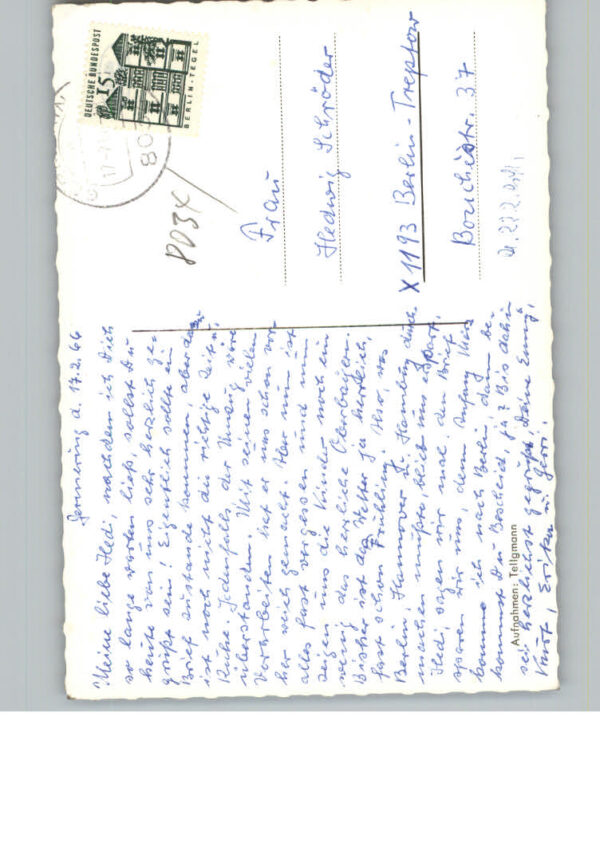 Germering d. 17.2.66
Meine liebe Hedi, nachdem ich Dich
so lange warten ließ, sollst Du
heute von uns sehr herzlich ge-
grüßt sein! Eigentlich sollte ein
Brief zustande kommen, aber dazu
ist noch nicht die richtige Zeit u.
Ruhe. Jedenfalls, der Umzug wäre
überstanden. Mit seinen vielen
Vorarbeiten hat er uns schon vor-
her weich gemacht. Aber nun ist
alles fast vergessen und nun
zeigen uns die Kinder noch ein
wenig das herrliche Oberbayern.
Bisher ist das Wetter ja herrlich,
fast schon Frühling. Also, was
Berlin, Hannover u. Hamburg durch-
machen mußte, blieb uns erspart.
Hedi, sagen wir mal, den Brief
sparen wir uns, denn Anfang März
komme ich nach Berlin, dann be-
kommst Du Bescheid, ja? Bis dahin
sei herzlichst gegrüßt Deine
Kurt, Erika
Aufnahmen: Tellgmann
DEUTSCHE BUNDESPOST
15
BERLIN-TEGEL
17.-2.
80
Frau
Hedwig Schröder
X 1193 Berlin-Treptow
Bouchéstr. 37